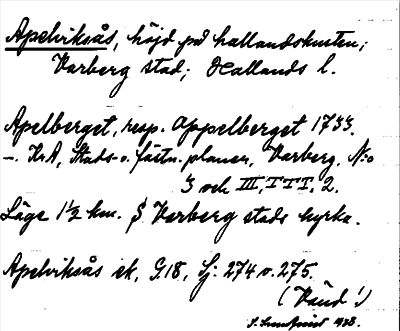 Apelviksås, höjd på hallandskusten;
Varberg stad; Hallands l.
Apelberget, resp. Appelberget 1733.
–. KrA, Stads- o. fästn. planer, Varberg. N:o
3 och III, TTT. 2.
Läge 1½ km. S Varberg stads kyrka.
Apelviksås ek, G18, Lj: 274 o. 275.
(Vänd!)